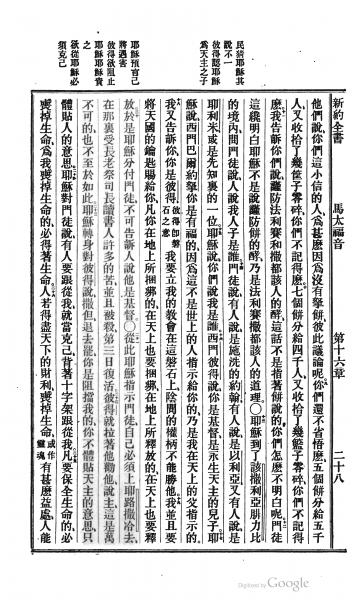 新約全書 馬太福音 第十六章 二十八
民論耶穌其說不一
彼得認耶穌為天主之子
耶穌預言己將遇害
彼得欲阻止之
耶穌耶穌責
欲從耶穌必須克己
他們說你們這小信的人爲甚麼因爲沒有拏餅彼此議論呢你們還不省悟麼五個餅分給五千
人又收拾了幾筐子零碎你們不記得麼七個餅分給四千人又收拾了幾筐子零碎你們不記得
麼我告訴你們謹防法利賽和撒都該人的酵這話不是指著餅說的你們怎麼不明白呢門徒
這纔明白耶穌不是說謹防餅的酵乃是法利賽撒都該人的道理〇耶穌到了該撒利亞腓力比
的境內問門徒說人說我人子是誰門徒說有人說是施洗的約翰有人說是以利亞又有人說是
耶利米或是先知裏的一位耶穌說你們說我是誰西門彼得說你是基督是永生天主的兒子耶
穌說西門巴爾約拏你是有福的因爲這不是世上的人指示給你的乃是我在天上的父指示的
我又告訴你你是彼得彼得卽磐石之意我要立我的教會在這磐石上陰間的權柄不能勝他我並且要
將天國的鑰匙賜給你凡你在地上所捆綁的在天上也要捆綁在地上所釋放的在天上也要釋
放於是耶穌分付門徒不可告訴人說他是基督〇從此耶穌指示門徒自己必須上耶路撒冷去
在那裏受長老祭司長讀書人許多的苦並且被殺第三日復活彼得就拉著他勸他說主這是萬
不可的也不至於如此耶穌轉身對彼得說撒但退去罷你是阻擋我的你不體貼天主的意思只
體貼人的意思耶穌對門徒說有人要跟從我就當克己背著十字架跟從我凡要保全生命的必
喪掉生命爲我喪掉生命的必得著生命人若得盡天下的財利喪掉生命或作靈魂有甚麼益處人能
Digitized by Google